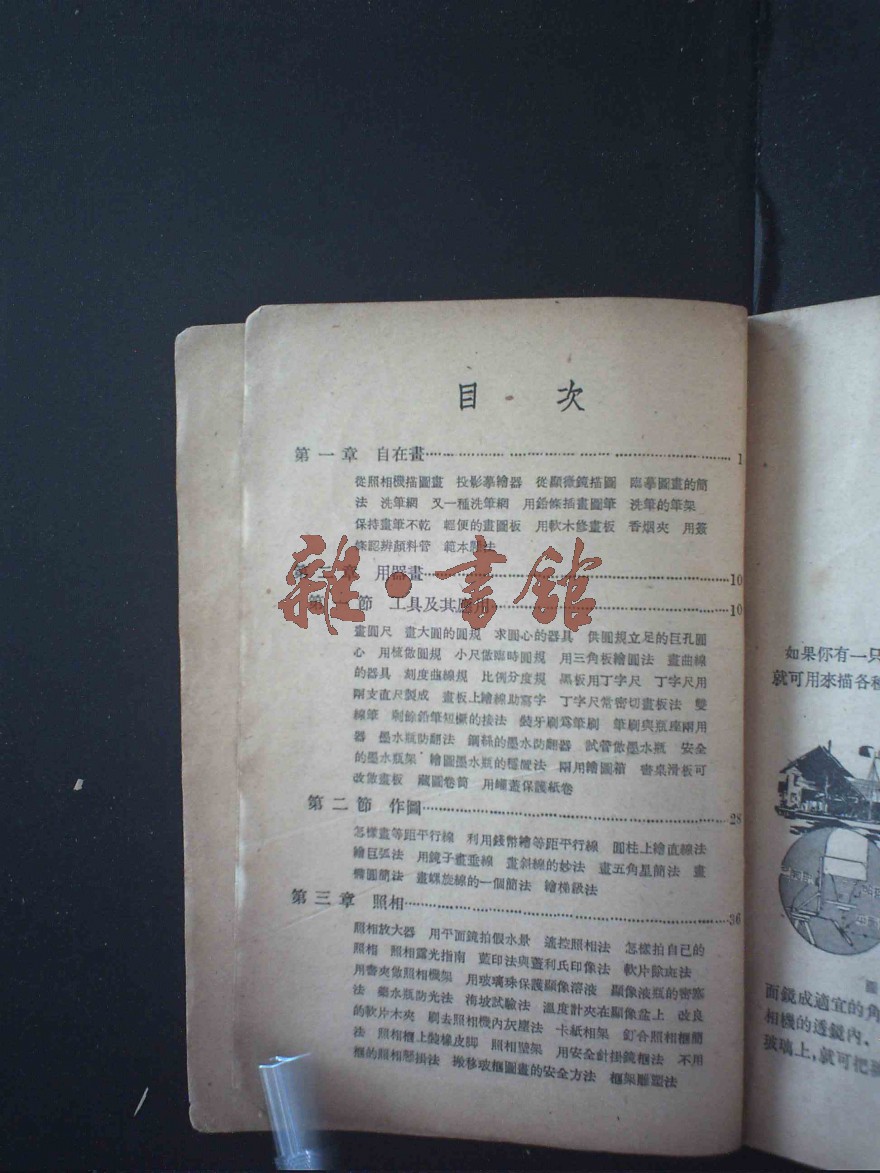 目 次
第一章 自在畫 1
從照相機描圖畫 投影摹繪器 從顯微鏡描圖 臨摹圖畫的簡
法 洗筆網 又一種洗筆網 用鉛條插畫圖筆 洗筆的筆架
保持畫筆不乾 輕便的畫圖板 用軟木修畫板 香烟夾 用簽
條認辨顏料管 範本
第二章 用器畫 10
第一節 工具及其應用 10
雜·書館
畫圓尺 畫大圓的圓規 求圓心的器具 供圓規立足的巨孔圓
心 用梳做圓規 小尺做臨時圓規 用三角板繪圓法 畫曲線
的器具 刻度曲線規 比例分度規 黑板用丁字尺 丁字尺用
兩支直尺製成 畫板上繪線助寫字 丁字尺常密切畫板法 雙
線筆 剩餘鉛筆短橛的接法 裝牙刷爲筆刷 筆刷與瓶座兩用
器 墨水瓶防翻法 鋼絲的墨水防翻器 試管做墨水瓶 安全
的墨水瓶架 繪圖墨水瓶的穩置法 兩用繪圖箱 書桌滑板可
改做畫板 藏圖卷筒 用罐蓋保護紙卷
第二節 作圖 28
怎樣畫等距平行線 利用錢幣繪等距平行線 圓柱上繪直線法
繪巨弧法 用鏡子畫垂線 畫斜線的妙法 畫五角星簡法 畫
橢圓簡法 畫螺旋線的一個簡法 繪梯級法
第三章 照相 36
照相放大器 用平面鏡拍假水景 遙控照相法 怎樣拍自己的
照相 照相露光指南 藍印法與蓋利氏印像法 軟片除斑法
用書夾做照相機架 用玻璃珠保護顯像溶液 顯像液瓶的密塞
法 藥水瓶防光法 海坡試驗法 溫度計夾在顯像盆上 改良
的軟片木夾 刷去照相機內灰塵法 卡紙相架 釘合照相框簡
法 照相框上裝橡皮脚 照相壁架 用安全針掛鏡框法 不用
框的照相懸掛法 搬移玻框圖畫的安全方法 框架雕塑法
如果你有一只
就可用來描各種
圖
面鏡成適宜的角
相機的透鏡內、
玻璃上，就可把